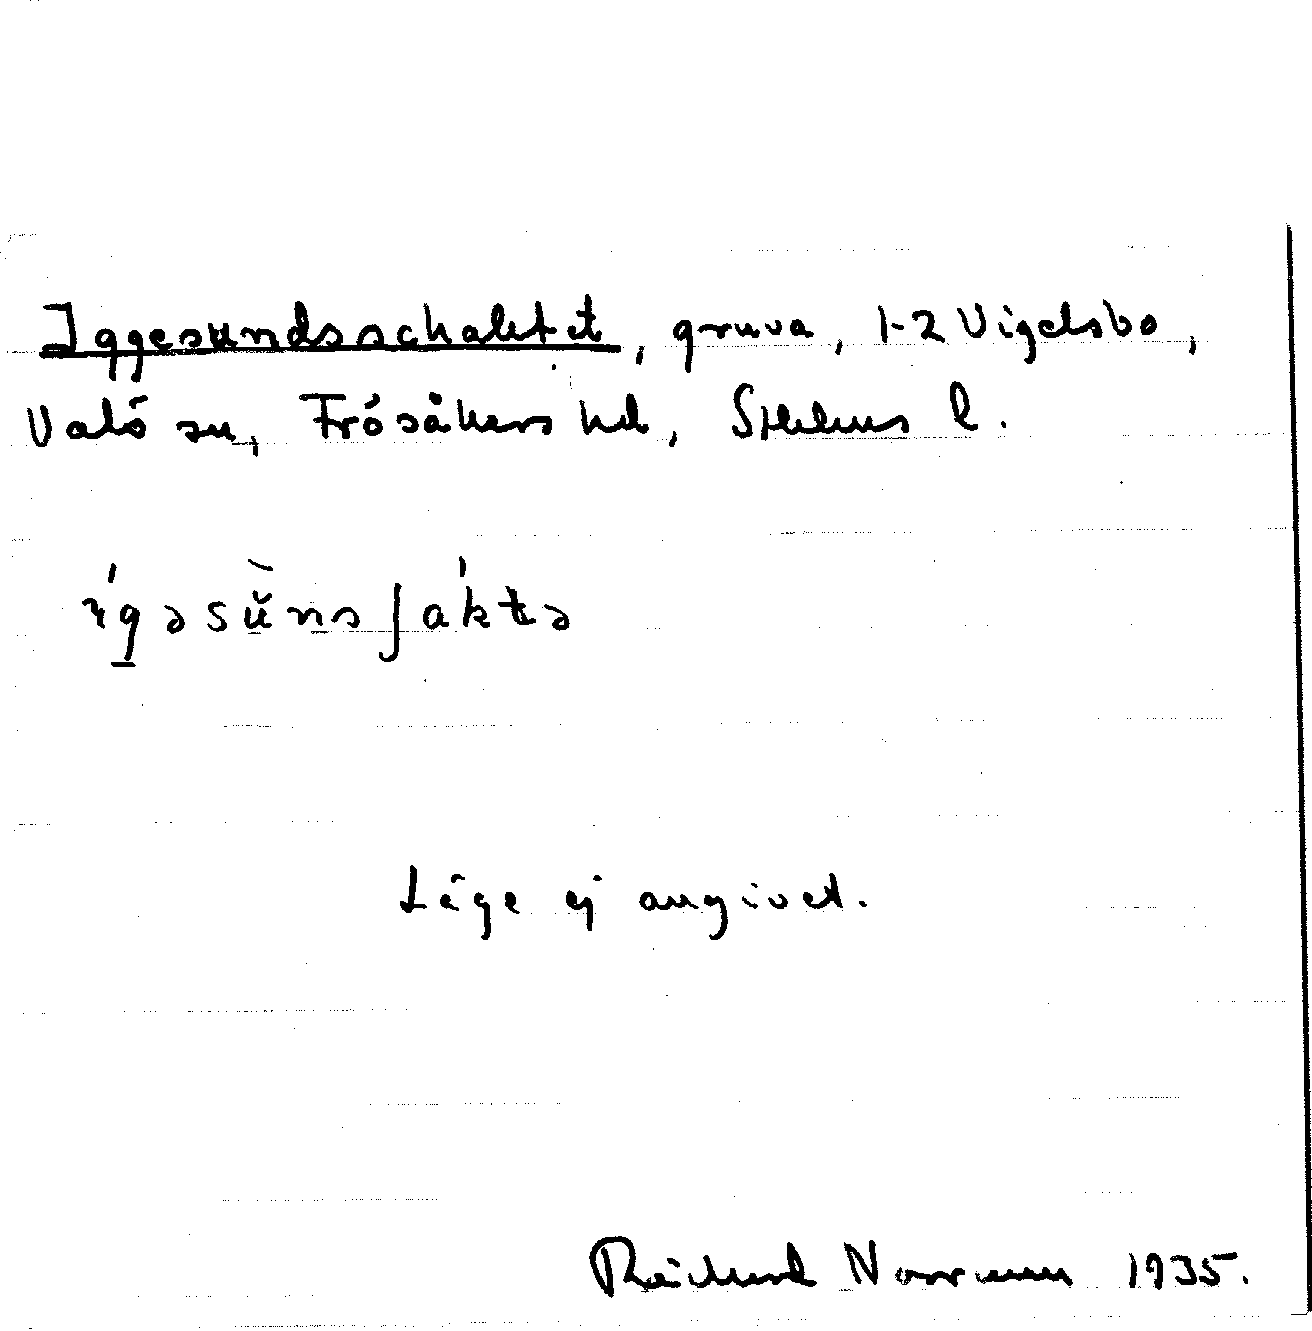 Iggesundsschaktet, gruva, 1-2 Vigelsbo,
Valö sn, Frösåkers hd, Sthlms l.
ígəsùnsʃáktə
Läge ej angivet.
Norrman 1935.